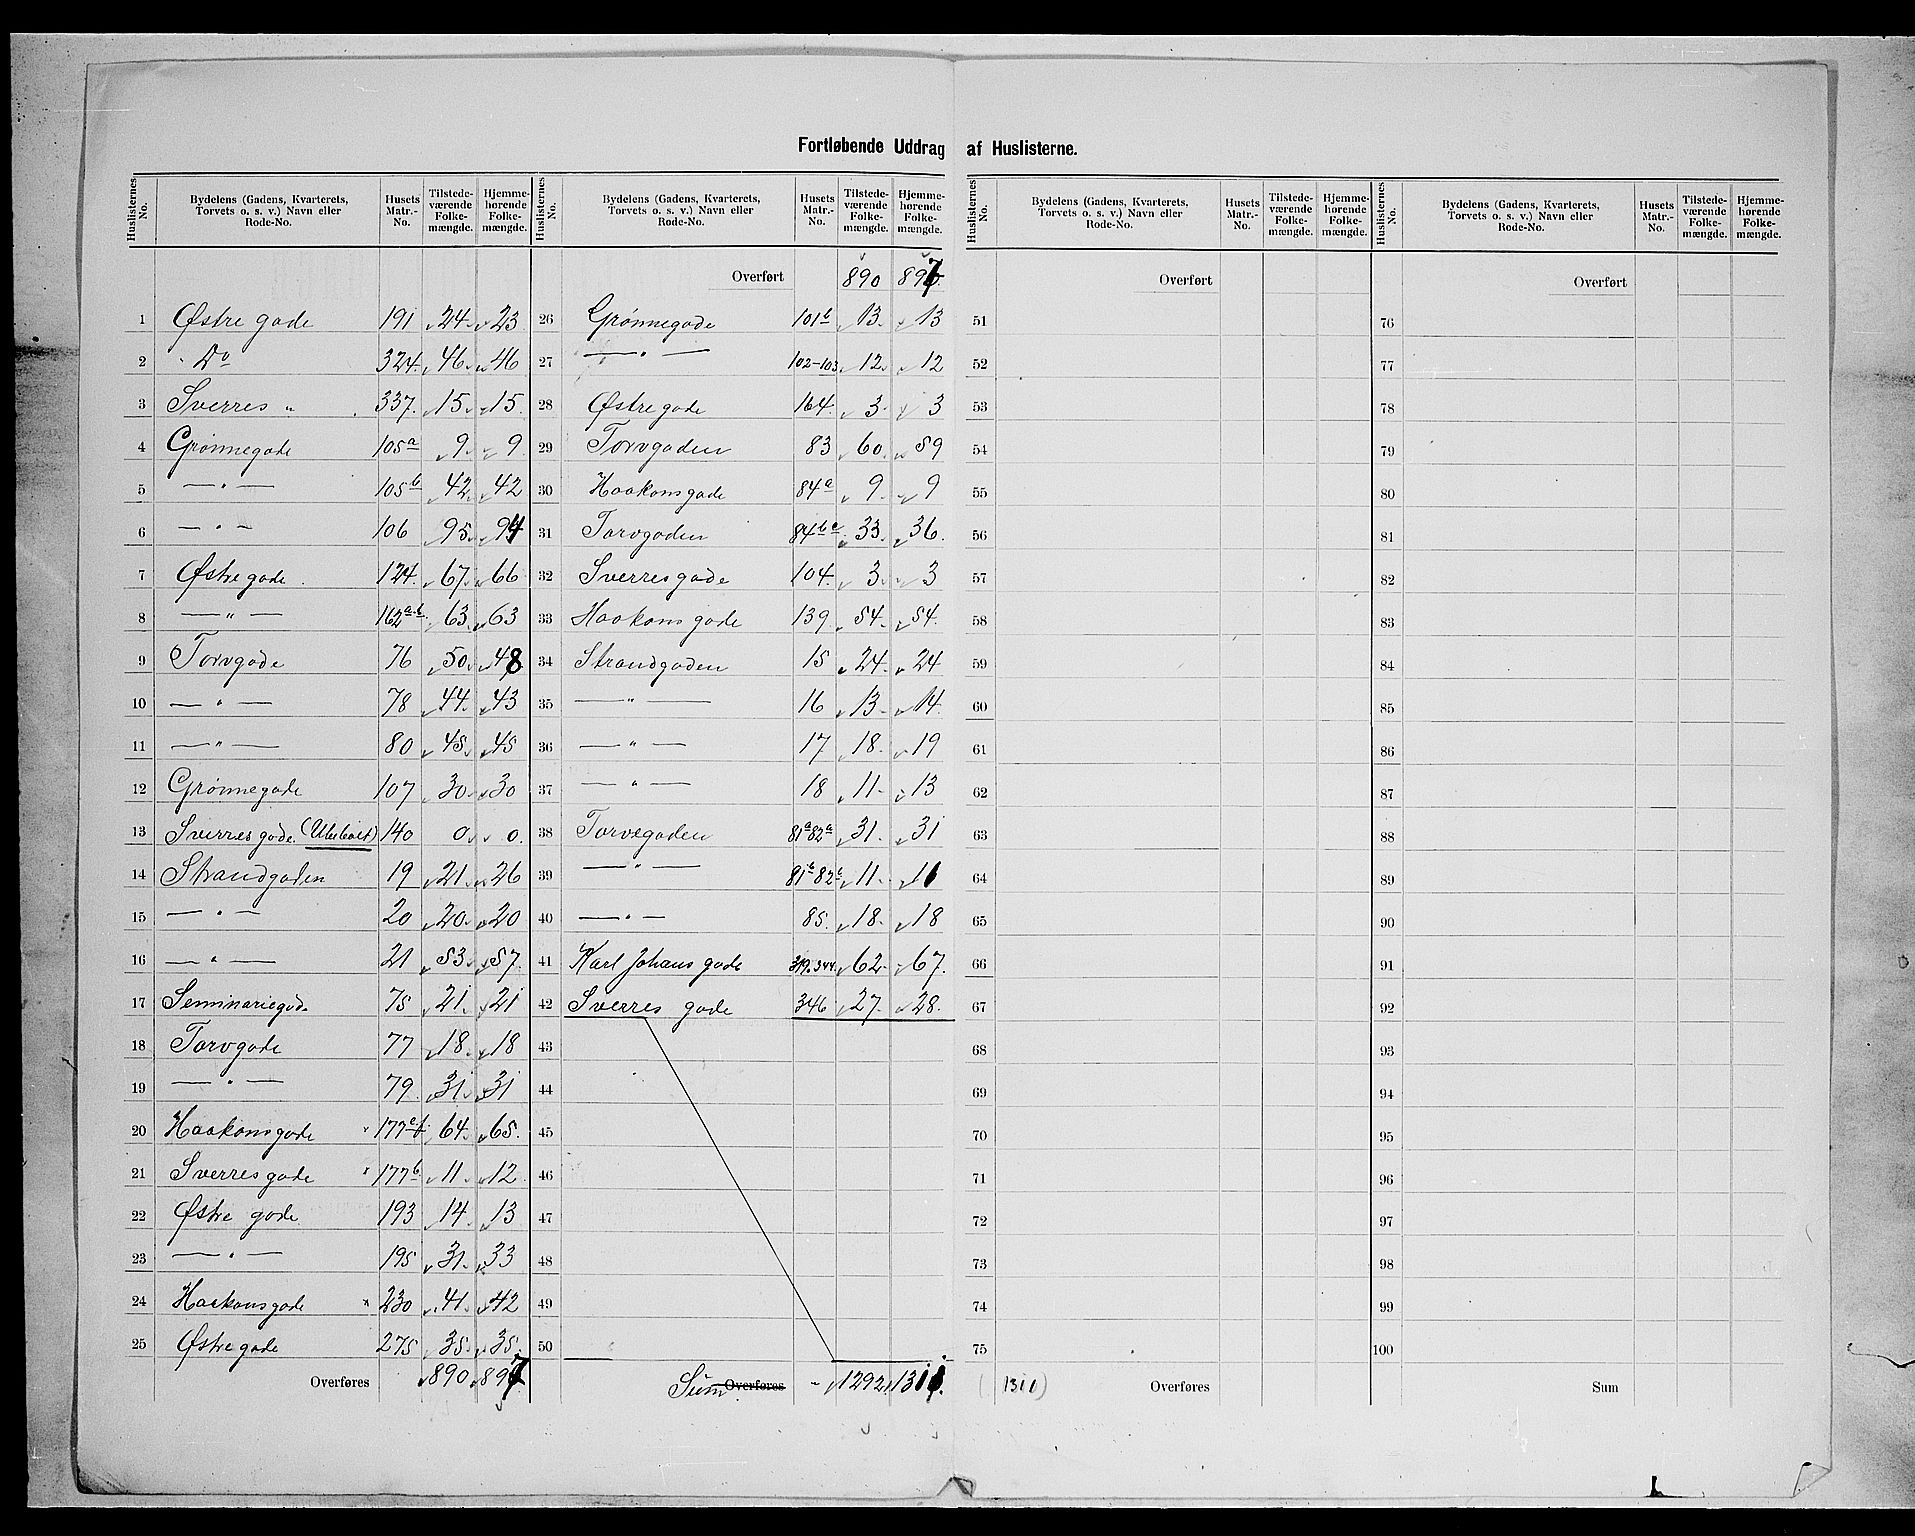 Fortløbende Uddrag af Huslisterne.
Huslisternes No. | Bydelens (Gadens, Kvarterets, Torvets o. s. v.) Navn eller Rode-No. | Husets Matr.-No. | Tilstedeværende Folkemængde. | Hjemmehørende Folkemængde.
1 Østre gade 191 24 23
2 " Do 324. 46 46
3 Sverres " 337. 15 15.
4 Grønnegade 105a 9 9
5 — " — 105b 42 42
6 — " — 106 95 94
7 Østre gade. 124. 67 66
8 — " — 162a-b 63 63
9 Torvgade 76 50 48
10 — " — 78 44 43
11 — " — 80 45 45
12 Grønnegade 107 30 30
13 Sverres gade. (Ubeboet) 140 0 0.
14 Strandgaden 19 21 26
15 — " — 20 20 20
16 — " — 21 53 57.
17 Seminariegade 75 21 21
18 Torvgade 77 18 18
19 — " — 79. 31 31
20 Haakonsgade × 64 65.
21 Sverresgade × 177b 11 12
22 Østre gade 193 14 13
23 — " — 195 31 33
24 Haakonsgade × 230 41 42
25 Østregade 275 35 35.
Overføres 890 897
Huslisternes No. | Bydelens (Gadens, Kvarterets, Torvets o. s. v.) Navn eller Rode-No. | Husets Matr.-No. | Tilstedeværende Folkemængde. | Hjemmehørende Folkemængde.
Overført 890 897
26 Grønnegade 101b 13 13
27 — " — 102-103 12 12
28 Østregade 164. 3 3
29 Torvgaden 83 60 59
30 Haakonsgade 84a 9 9
31 Torvgaden 33 36.
32 Sverresgade 104. 3 3
33 Haakonsgade 139. 54 54.
34 Strandgaden 15 24 24
35 — " — 16 13 14.
36 — " — 17 18 19
37 — " — 18 11 13
38 Torvegaden 81a82a 31 31
39 — " — 11 11
40 — " — 85. 18 18
41 Karl Johans gade 319.344. 62 67.
42 Sverres gade 346 27 28.
43
44
45
46
47
48
49
50
Sum Overføres - 1292 1311.
Huslisternes No. | Bydelens (Gadens, Kvarterets, Torvets o. s. v.) Navn eller Rode-No. | Husets Matr.-No. | Tilstedeværende Folkemængde. | Hjemmehørende Folkemængde.
Overført
51
52
53
54
55
56
57
58
59
60
61
62
63
64
65
66
67
68
69
70
71
72
73
74
75
(1311) Overføres
Huslisternes No. | Bydelens (Gadens, Kvarterets, Torvets o. s. v.) Navn eller Rode-No. | Husets Matr.-No. | Tilstedeværende Folkemængde. | Hjemmehørende Folkemængde.
Overført
76
77
78
79
80
81
82
83
84
85
86
87
88
89
90
91
92
93
94
95
96
97
98
99
100
Sum